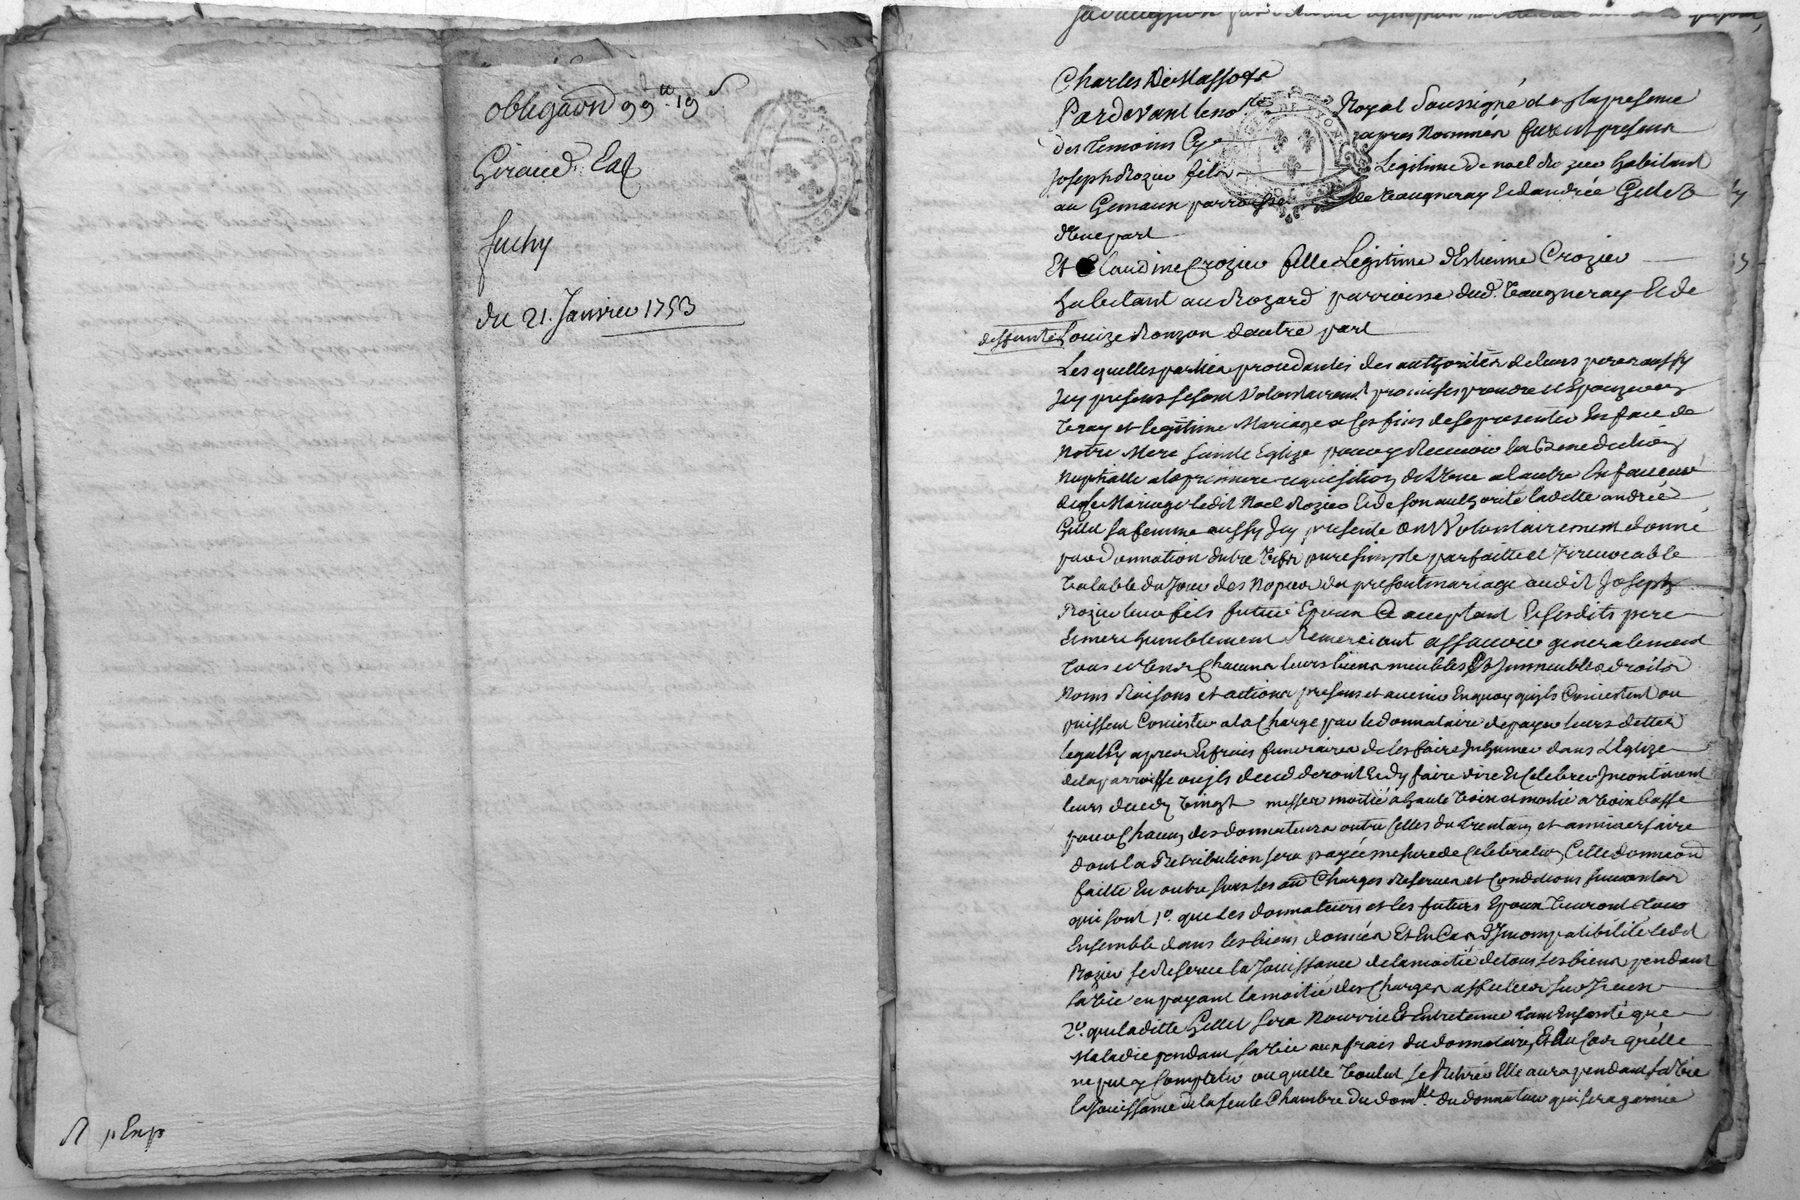 obligaon 99tt 19s
Giraud
Juchy
du 21. Janvier 1753
p Exp
Charles De Massotz
Pardevant le nore Royal Soussigné et en la presence
des temoins Cy apres Nommés furent presens
Joseph Rozier fils Legitime de noel Rozier habitant
au Gemaux parroisse de Vaugneray et dandrée Gillet
d'Une part
Et Claudine Crozier fille Legitime d'Estienne Crozier
habitant au Rozard parroisse dud. Vaugneray Et de
deffunte Louize Ronzon dautre part
Les quelles parties procedantes des authorités de leurs peres aussy
Icy presens se sont Volontairement promises prendre et Epouzer en
Vray et legitime Mariage a ces fins de se presenter En face de
Notre Mere Sainte Eglize pour y Recevoir la Benediction
Nuptialle a la premiere requisition de l'Une a l'autre En faveur
duql Mariage ledit Noel Rozier Et de son authorité laditte andrée
Gillet sa femme aussy Icy presente ont Volontairement donné
par donnation entre Vifs pure simple parfaitte et Irrevocable
Valable du Jour des Nopces du present mariage audit Joseph
Rozier leur fils futur Epoux Ce acceptant Et sesdits pere
Et mere humblement Remerciant assavoir generalement
tous et Uns Chacuns leurs biens meubles Et Immeubles droits
Noms Raisons et actions presens et avenir En quoy qu'ils Consistent ou
puissent Consister a la Charge par le donnataire de payer leurs dettes
legats Cy apres Et frais funeraires de les faire Inhumer dans L'Eglize
de la parroisse ou ils decedderont Et dy faire dire Et Celebrer Incontinent
leurs deceds Vingt messes moitié a haute Voix et moitié a Voix basse
pour Chacun des donnateurs outre Celles du trentain et anniversaire
dont la Retribution sera payée mesure de Celebration Cette donnaon
faitte En outre sous les aues Charges Reserves et Conditions suivantes
qui sont 1o. que les donnateurs et les futurs Epoux Vivront tous
Ensemble dans les biens donnés Et En Cas d'Incompatibilité ledit
Rozier se Reserve la Jouissance de la moitié de tous ses biens pendant
sa Vie en payant la moitié des Charges affectées sur Iceux
2o. que laditte Gillet sera Nourrie Et Entretenue tant En santé que
Maladie pendant sa Vie aux frais du donnataire Et Au Cas qu'elle
ne put y Compatir ou quelle Voulut se Retirer Elle aura pendant sa Vie
la Jouissance de la seule Chambre du domlle du donnateur qui sera garnie